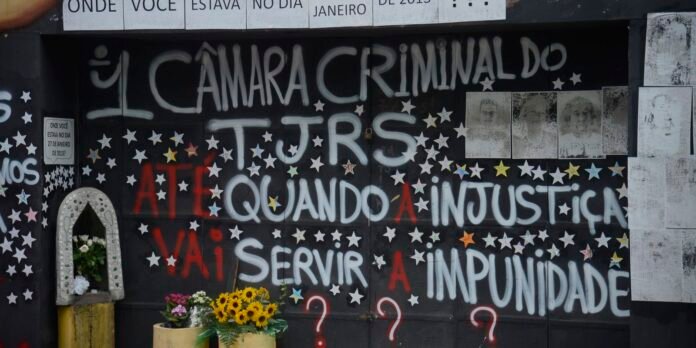 ONDE VOCÊ ESTAVA NO DIA
JANEIRO DE 2013 ???
1ª CÂMARA CRIMINAL DO
TJRS
ATÉ QUANDO A INJUSTIÇA
VAI SERVIR A IMPUNIDADE
? ? ?
ONDE VOCÊ
ESTAVA NO DIA
27 DE JANEIRO
DE 2013?